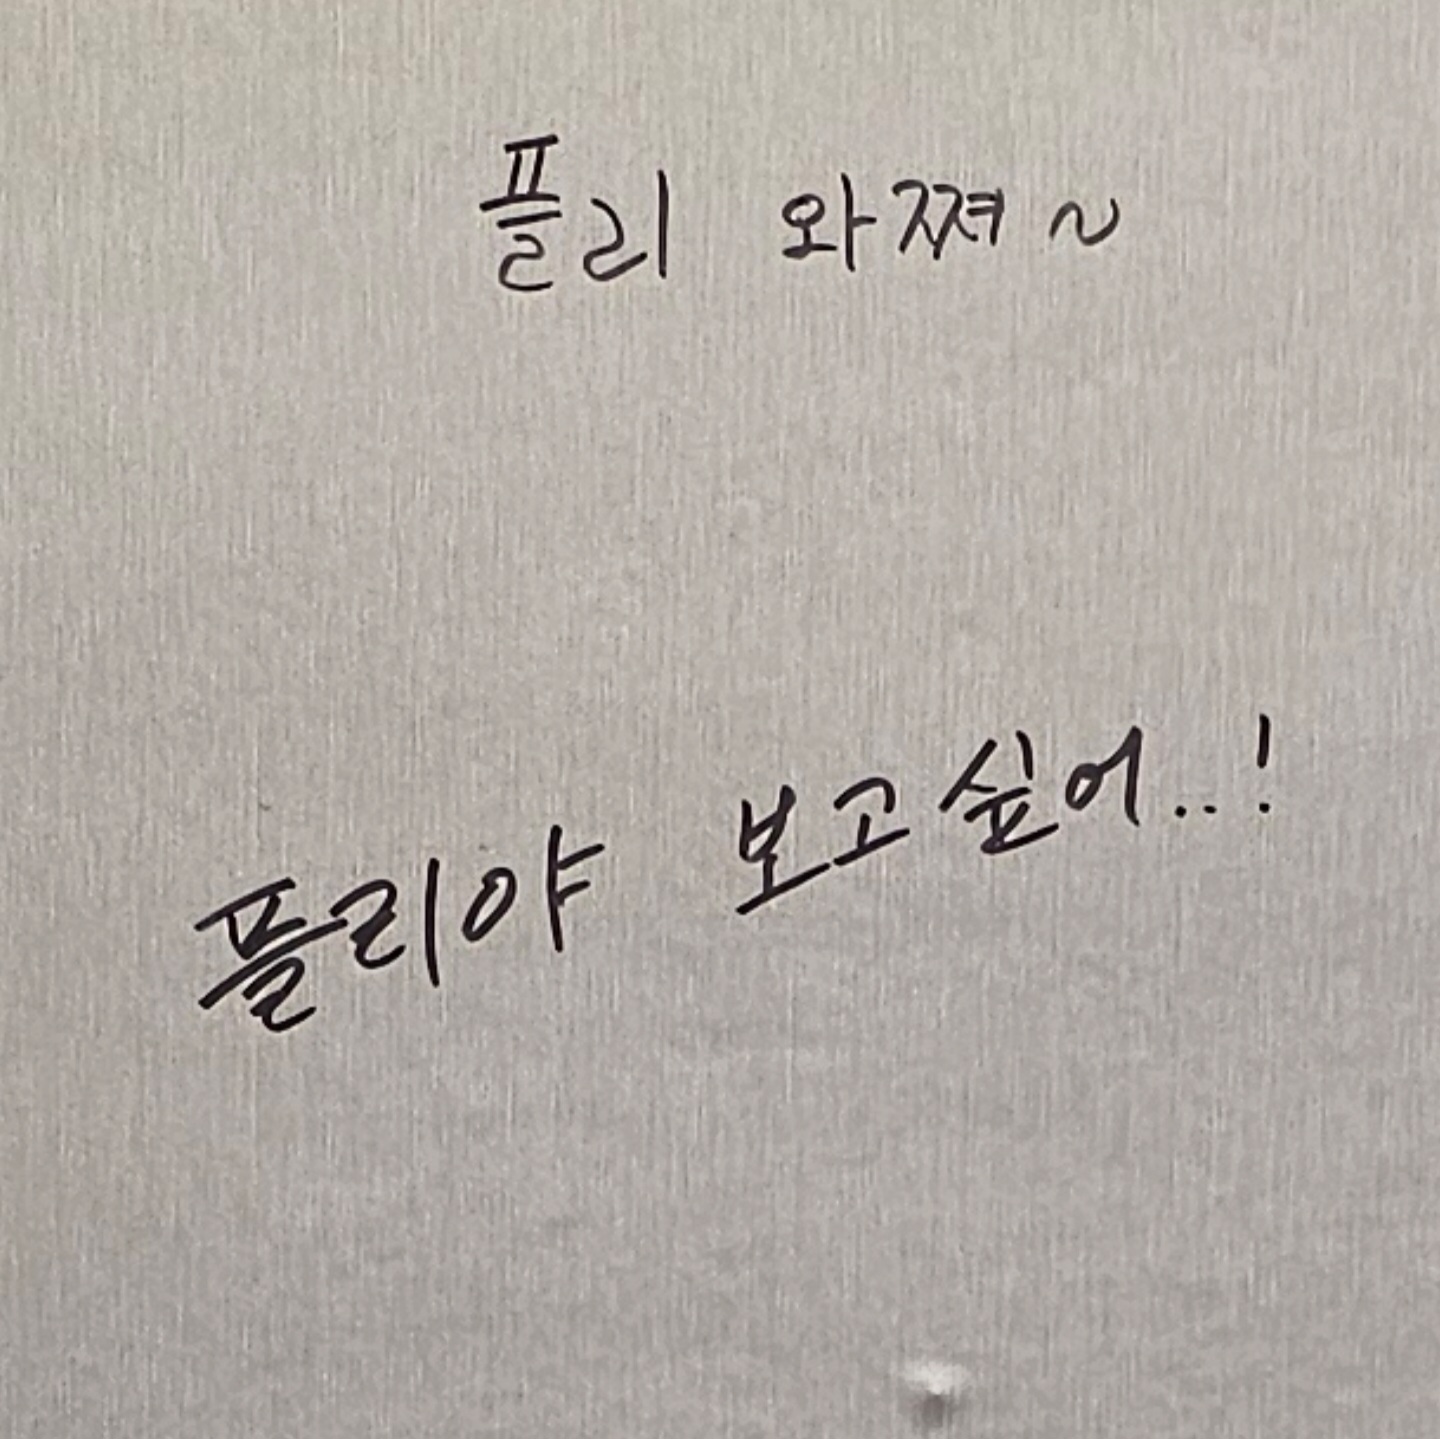 플리 와쪄~
플리야 보고싶어..!